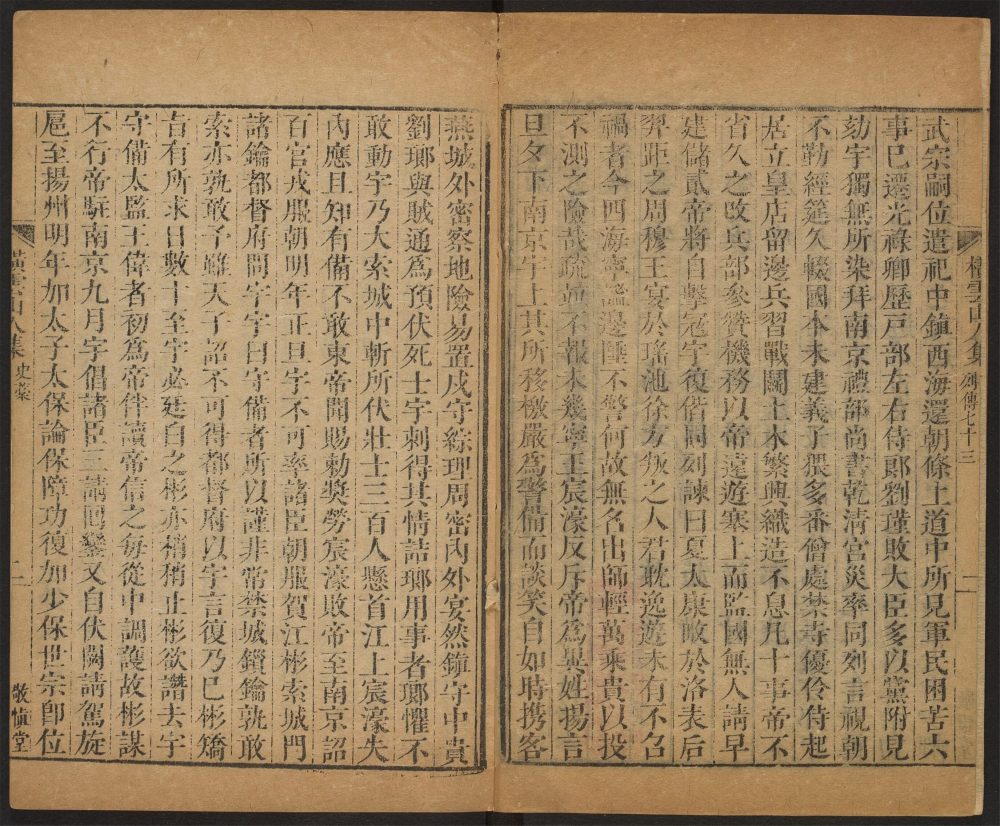 橫雲山人集 列傳七十三 一
武宗嗣位遣祀中鎮西海還朝條上道中所見軍民困苦六
事巳遷光祿卿歷戸部左右侍郎劉瑾敗大臣多以黨附見
劾宇獨無所染拜南京禮部尚書乾清宮災率同列言視朝
不勤經筵久輟國本未建義子猥多番僧處禁寺優伶侍起
居立皇店留邊兵習戰鬬土木繁興織造不息凡十事帝不
省久之改兵部參贊機務以帝遠遊塞上而監國無人請早
建儲貳帝將自擊寇宇復偕同列諫曰夏太康畋於洛表后
羿距之周穆王宴於瑤池徐方叛之人君耽逸遊未有不召
禍者今四海寧謐邊陲不警何故無名出師輕萬乘貴以投
不測之險哉疏並不報未幾寧王宸濠反斥帝爲異姓揚言
旦夕下南京宇上其所移檄嚴爲警備而談笑自如時携客
燕城外密察地險易置戍守綜理周密內外宴然鎮守中貴
劉瑯與賊通爲預伏死士宇刺得其情詰瑯用事者瑯懼不
敢動宇乃大索城中斬所伏壯士三百人懸首江上宸濠失
內應且知有備不敢東帝聞賜勅獎勞宸濠敗帝至南京詔
百官戎服朝明年正旦宇不可率諸臣朝服賀江彬索城門
諸鑰都督府問宇宇曰守備者所以謹非常禁城鎖鑰孰敢
索亦孰敢予雖天子詔不可得都督府以宇言復乃巳彬矯
旨有所求日數十至宇必廷白之彬亦稍稍止彬欲譖去宇
守備太監王偉者初爲帝伴讀帝信之每從中調護故彬謀
不行帝駐南京九月宇倡諸臣三請囘鑾又自伏闕請駕旋
扈至揚州明年加太子太保論保障功復加少保世宗卽位
橫雲山人集 史藁 二 敬愼堂